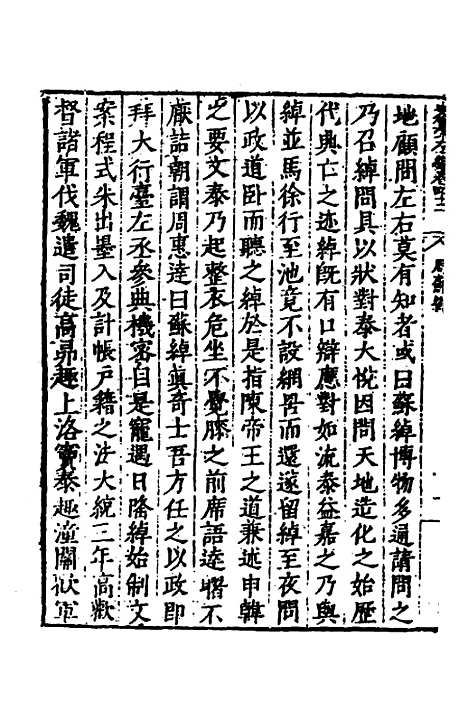 地顧問左右莫有知者或曰蘇綽博物多通請問之
乃召綽問具以狀對泰大悅因問天地造化之始歷
代興亡之迹綽既有口辯應對如流泰益嘉之乃與
綽並馬徐行至池竟不設網罟而還遂留綽至夜問
以政道卧而聽之綽於是指陳帝王之道兼述申韓
之要文泰乃起整衣危坐不覺膝之前席語逵曙不
厭詰朝謂周惠逹曰蘇綽真奇士吾方任之以政即
拜大行臺左丞參典機密自是寵遇日隆綽始制文
案程式朱出墨入及計帳戸籍之法大統三年高歡
督諸軍伐魏遣司徒高昻趣上洛竇泰趣潼關歡軍